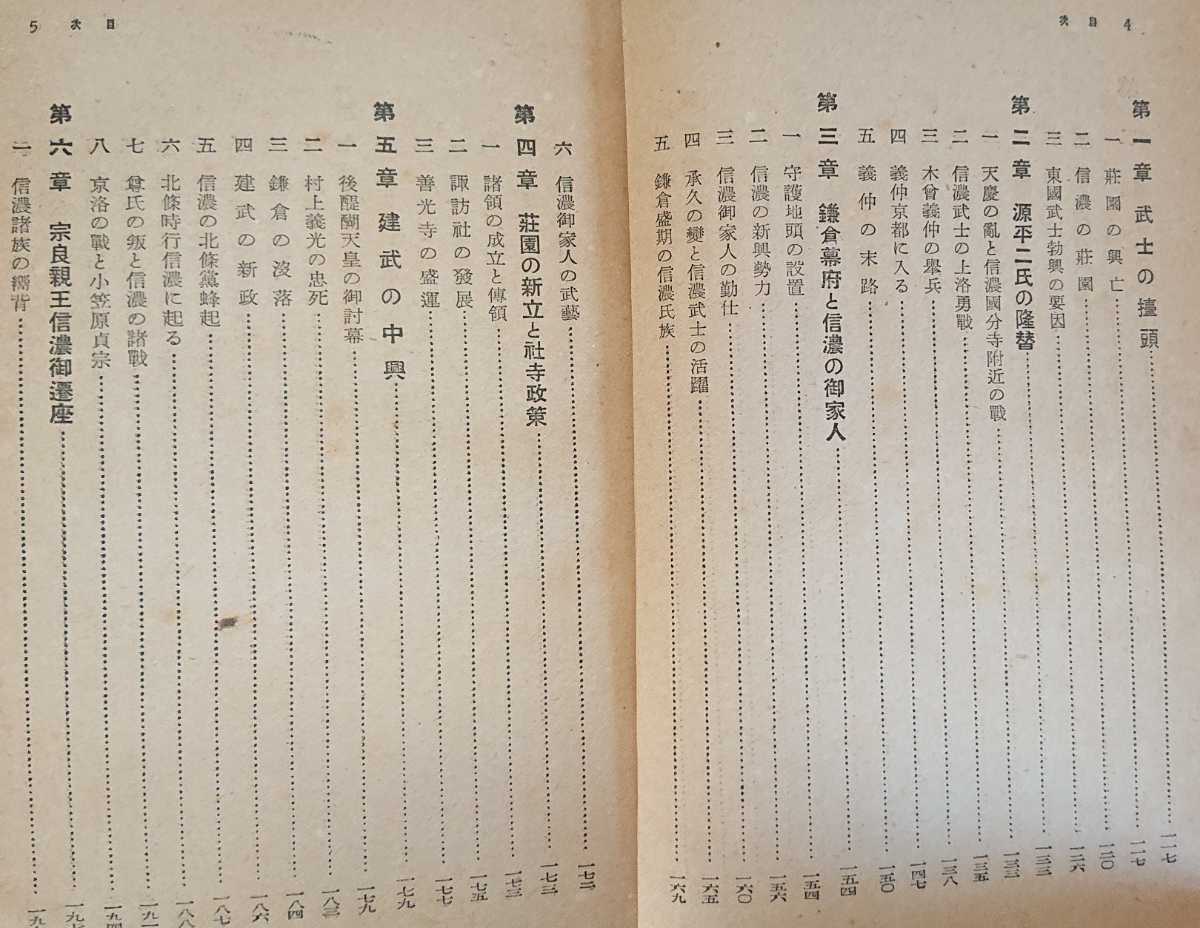 目次 4
第一章 武士の擡頭……一一七
一 莊園の興亡……一一七
二 信濃の莊園……一二〇
三 東國武士勃興の要因……一二六
第二章 源平二氏の隆替……一三三
一 天慶の亂と信濃國分寺附近の戰……一三三
二 信濃武士の上洛勇戰……一三五
三 木曾義仲の擧兵……一三八
四 義仲京都に入る……一四七
五 義仲の末路……一五〇
第三章 鎌倉幕府と信濃の御家人……一五四
一 守護地頭の設置……一五四
二 信濃の新興勢力……一五六
三 信濃御家人の勤仕……一六〇
四 承久の變と信濃武士の活躍……一六五
五 鎌倉盛期の信濃氏族……一六九
目次 5
六 信濃御家人の武藝……一七二
第四章 莊園の新立と社寺政策……一七三
一 諸領の成立と傳領……一七三
二 諏訪社の發展……一七五
三 善光寺の盛運……一七七
第五章 建武の中興……一七九
一 後醍醐天皇の御討幕……一七九
二 村上義光の忠死……一八三
三 鎌倉の沒落……一八四
四 建武の新政……一八六
五 信濃の北條黨蜂起……一八七
六 北條時行信濃に起る……一八八
七 尊氏の叛と信濃の諸戰……一九
八 京洛の戰と小笠原貞宗……一九四
第六章 宗良親王信濃御遷座……一九七
一 信濃諸族の嚮背……一九